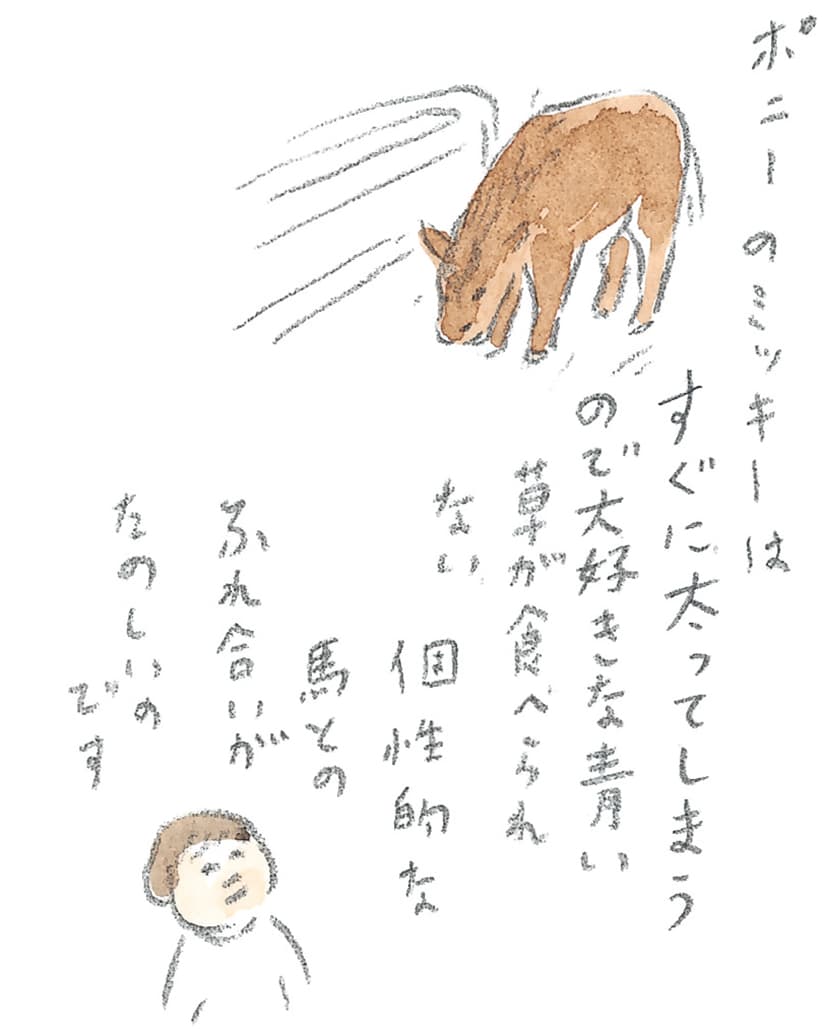 ポニーのミッキーは
すぐに太ってしまう
ので大好きな青い
草が食べられ
ない
個性的な
馬との
ふれ合いが
たのしいの
です